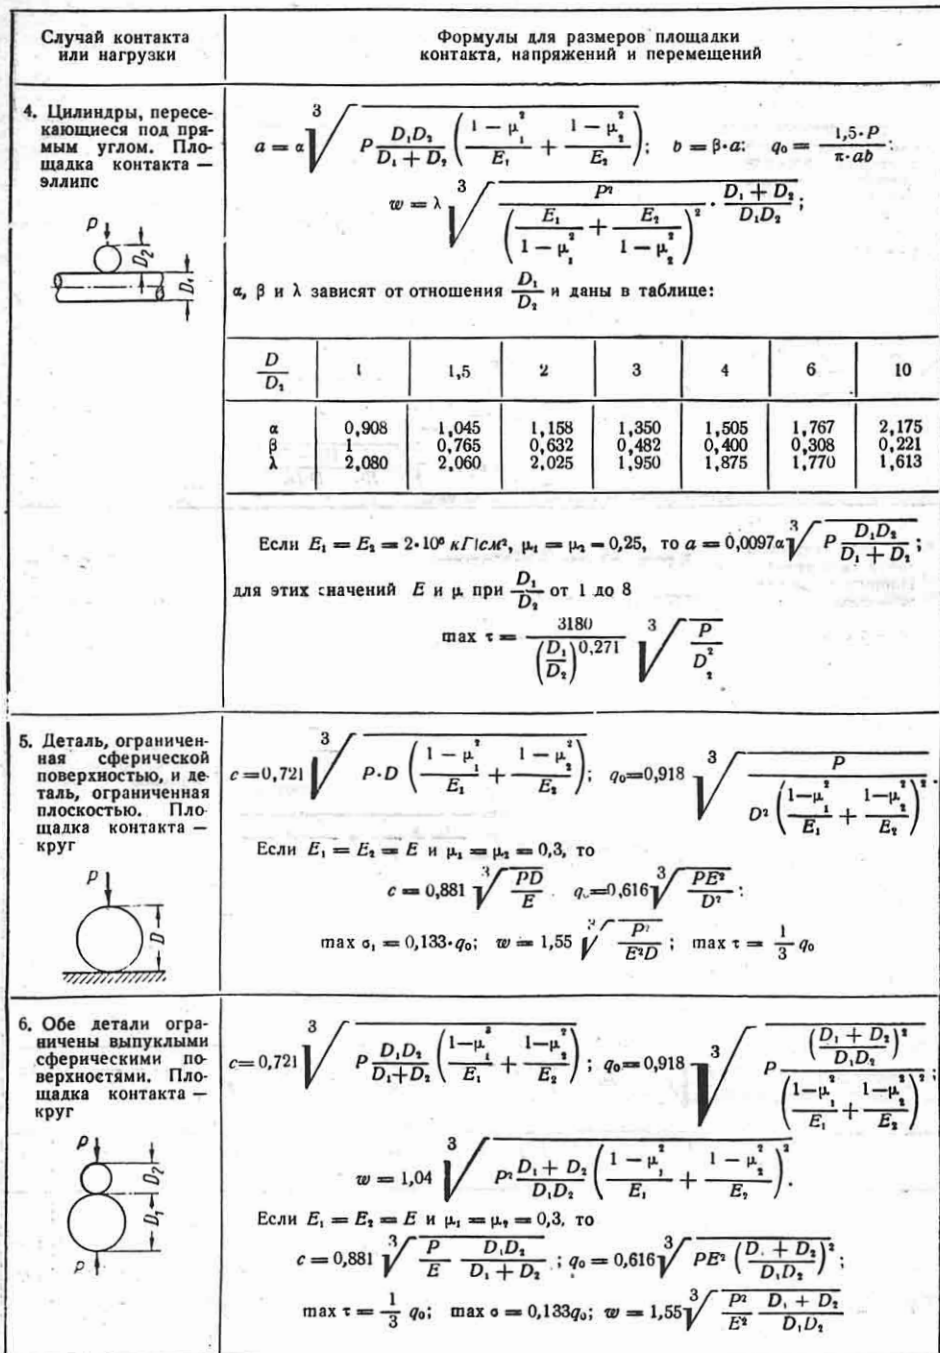 Случай контакта или нагрузки
Формулы для размеров площадки контакта, напряжений и перемещений
4. Цилиндры, пересе-
кающиеся под пря-
мым углом. Пло-
щадка контакта —
эллипс
P D₂ D₁
a = α ∛(P D₁D₂/(D₁ + D₂) ((1 − μ₁²)/E₁ + (1 − μ₂²)/E₂)); b = β·a; q₀ = 1,5·P/(π·ab);
w = λ ∛(P²/(E₁/(1 − μ₁²) + E₂/(1 − μ₂²))² · (D₁ + D₂)/(D₁D₂));
α, β и λ зависят от отношения D₁/D₂ и даны в таблице:
D/D₂ 1 1,5 2 3 4 6 10
α 0,908 1,045 1,158 1,350 1,505 1,767 2,175
β 1 0,765 0,632 0,482 0,400 0,308 0,221
λ 2,080 2,060 2,025 1,950 1,875 1,770 1,613
Если E₁ = E₂ = 2·10⁶ кГ/см², μ₁ = μ₂ = 0,25, то a = 0,0097α ∛(P D₁D₂/(D₁ + D₂));
для этих значений E и μ при D₁/D₂ от 1 до 8
max τ = 3180/(D₁/D₂)^0,271 ∛(P/D₂²)
5. Деталь, ограничен-
ная сферической
поверхностью, и де-
таль, ограниченная
плоскостью. Пло-
щадка контакта —
круг
P D
c = 0,721 ∛(P·D ((1 − μ₁²)/E₁ + (1 − μ₂²)/E₂)); q₀ = 0,918 ∛(P/(D² ((1−μ₁²)/E₁ + (1−μ₂²)/E₂)²)).
Если E₁ = E₂ = E и μ₁ = μ₂ = 0,3, то
c = 0,881 ∛(PD/E) q₀ = 0,616 ∛(PE²/D²);
max σ₁ = 0,133·q₀; w = 1,55 ∛(P²/(E²D)); max τ = 1/3 q₀
6. Обе детали огра-
ничены выпуклыми
сферическими по-
верхностями. Пло-
щадка контакта —
круг
P D₂ D₁ P
c = 0,721 ∛(P D₁D₂/(D₁+D₂) ((1−μ₁²)/E₁ + (1−μ₂²)/E₂)); q₀ = 0,918 ∛(P ((D₁ + D₂)/(D₁D₂))²/((1−μ₁²)/E₁ + (1−μ₂²)/E₂)²);
w = 1,04 ∛(P² (D₁ + D₂)/(D₁D₂) ((1 − μ₁²)/E₁ + (1 − μ₂²)/E₂)²).
Если E₁ = E₂ = E и μ₁ = μ₂ = 0,3, то
c = 0,881 ∛(P/E D₁D₂/(D₁ + D₂)); q₀ = 0,616 ∛(PE² ((D₁ + D₂)/(D₁D₂))²);
max τ = 1/3 q₀; max σ = 0,133q₀; w = 1,55 ∛(P²/E² (D₁ + D₂)/(D₁D₂))